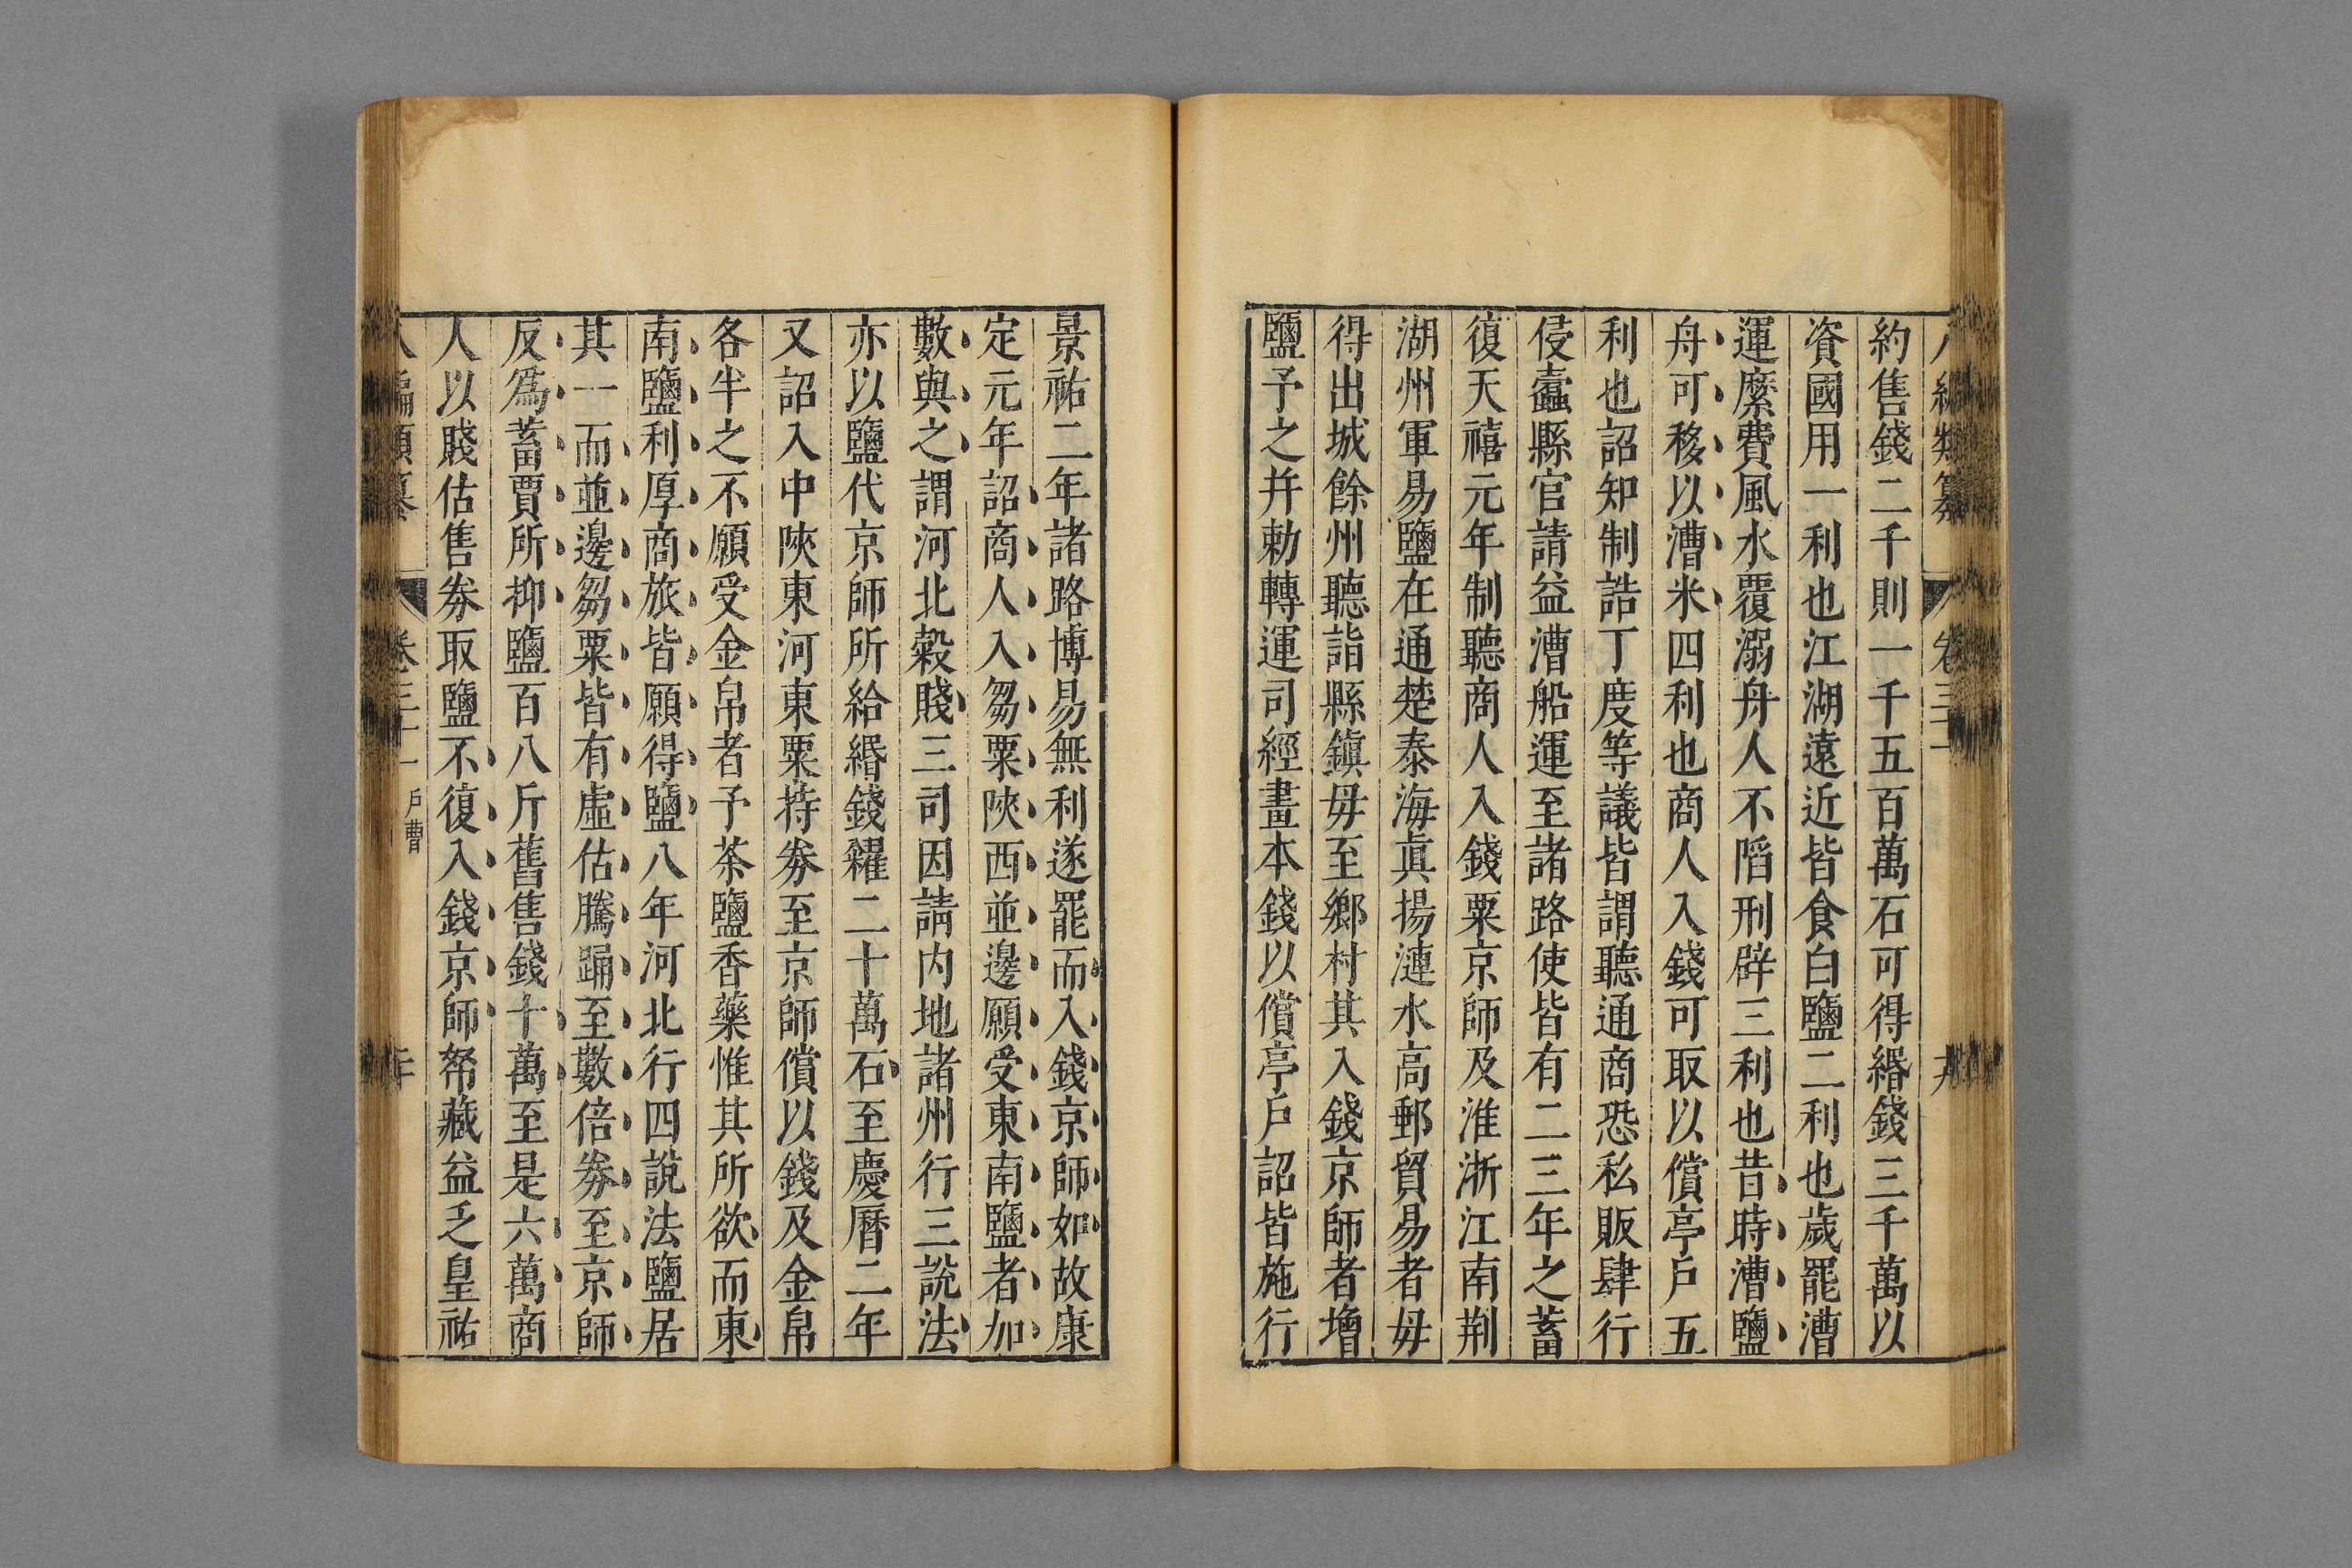 約售錢二千則一千五百萬石可得緡錢三千萬以
資國用一利也江湖遠近皆食白鹽二利也歲罷漕
運縻費風水覆溺舟人不陷刑辟三利也昔時漕鹽
舟可移以漕米四利也商人入錢可取以償亭戶五
利也詔知制誥丁度等議皆謂聽通商恐私販肆行
侵蠹縣官請益漕船運至諸路使皆有二三年之蓄
復天禧元年制聽商人入錢粟京師及淮浙江南荆
湖州軍易鹽在通楚泰海眞揚漣水高郵貿易者毋
得出城餘州聽詣縣鎮毋至鄉村其入錢京師者增
鹽予之幷勅轉運司經畫本錢以償亭戶詔皆施行
景祐二年諸路博易無利遂罷而入錢京師如故康
定元年詔商人入芻粟陜西並邊願受東南鹽者加
數與之謂河北穀賤三司因請內地諸州行三說法
亦以鹽代京師所給緡錢糴二十萬石至慶曆二年
又詔入中陜東河東粟持劵至京師償以錢及金帛
各半之不願受金帛者予茶鹽香藥惟其所欲而東
南鹽利厚商旅皆願得鹽八年河北行四說法鹽居
其一而並邊芻粟皆有虛估騰踊至數倍劵至京師
反爲蓄賈所抑鹽百八斤舊售錢十萬至是六萬商
人以賤估售劵取鹽不復入錢京師帑藏益乏皇祐
卷三十一 戶曹